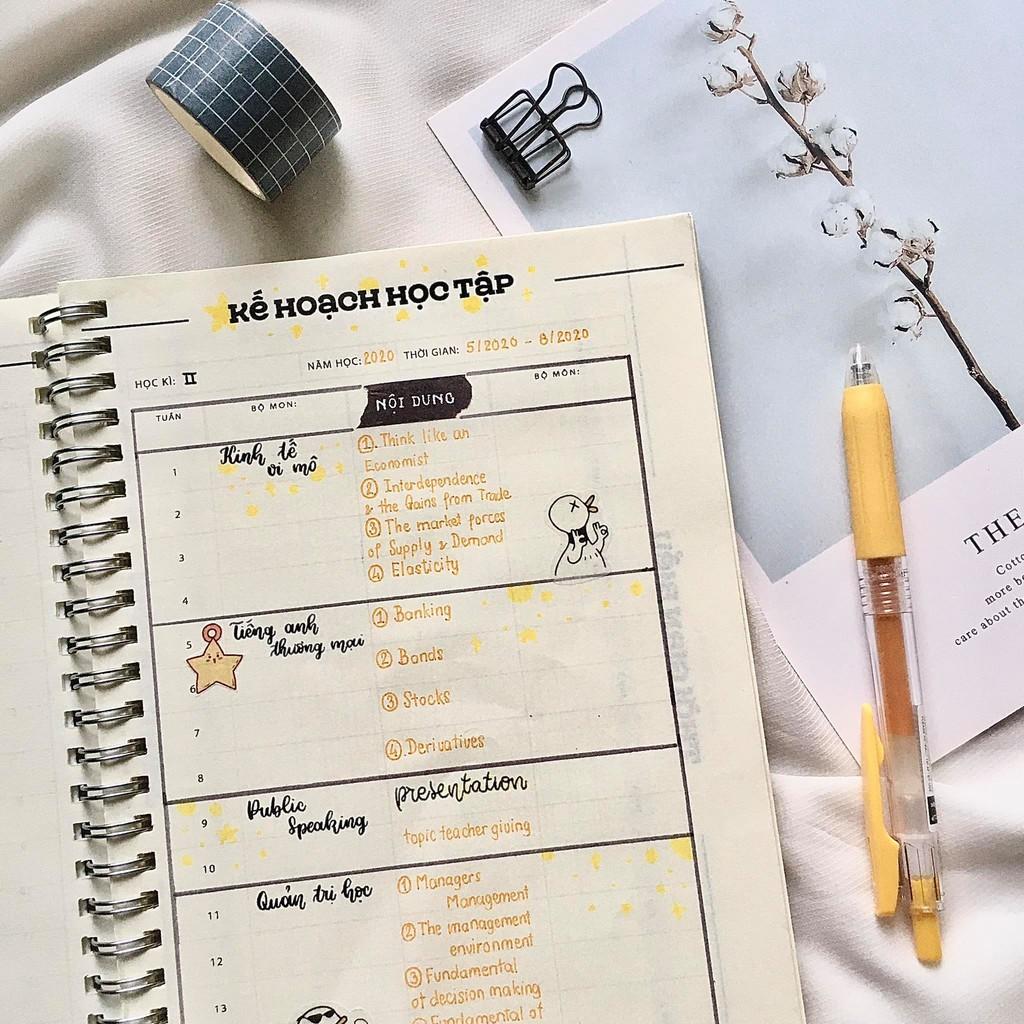 KẾ HOẠCH HỌC TẬP
NĂM HỌC: 2020 THỜI GIAN: 5/2020 - 8/2020
HỌC KÌ: II
TUẦN BỘ MÔN: NỘI DUNG BỘ MÔN:
Kinh tế
vi mô
1
2
3
4
① Think like an
Economist
② Interdependence
& the Gains from Trade
③ The market forces
of Supply & Demand
④ Elasticity
Tiếng anh
thương mại
5
6
7
8
① Banking
② Bonds
③ Stocks
④ Derivatives
Public
Speaking
9
10
presentation
topic teacher giving
Quản trị học
11
12
13
① Managers
Management
② The management
environment
③ Fundamental
of decision making
④ Fundamental of
THE
Cotto
more be
care about th